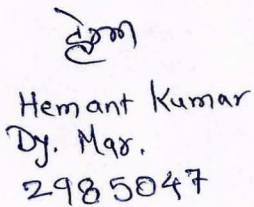 Hemant Kumar
Dy. Mgr.
2985047